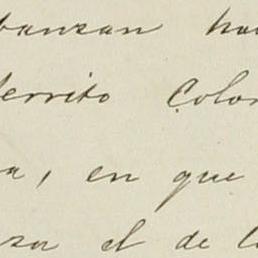 banzan ha
errito Colon
a, en que
za el de la